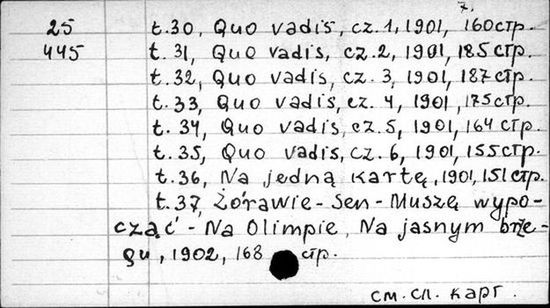 7.
25 t.30, Quo vadis, cz.1, 1901, 160стр.
445 t.31, Quo vadis, cz.2, 1901, 185стр.
t.32, Quo vadis, cz.3, 1901, 187стр.
t.33, Quo vadis, cz.4, 1901, 175стр.
t.34, Quo vadis, cz.5, 1901, 164стр.
t.35, Quo vadis, cz.6, 1901, 155стр.
t.36, Na jedną kartę, 1901, 151стр.
t.37, Żórawie-Sen-Muszę wypo-
cząć-Na Olimpie, Na jasnym brze-
gu, 1902, 168 стр.
см. сл. карт.